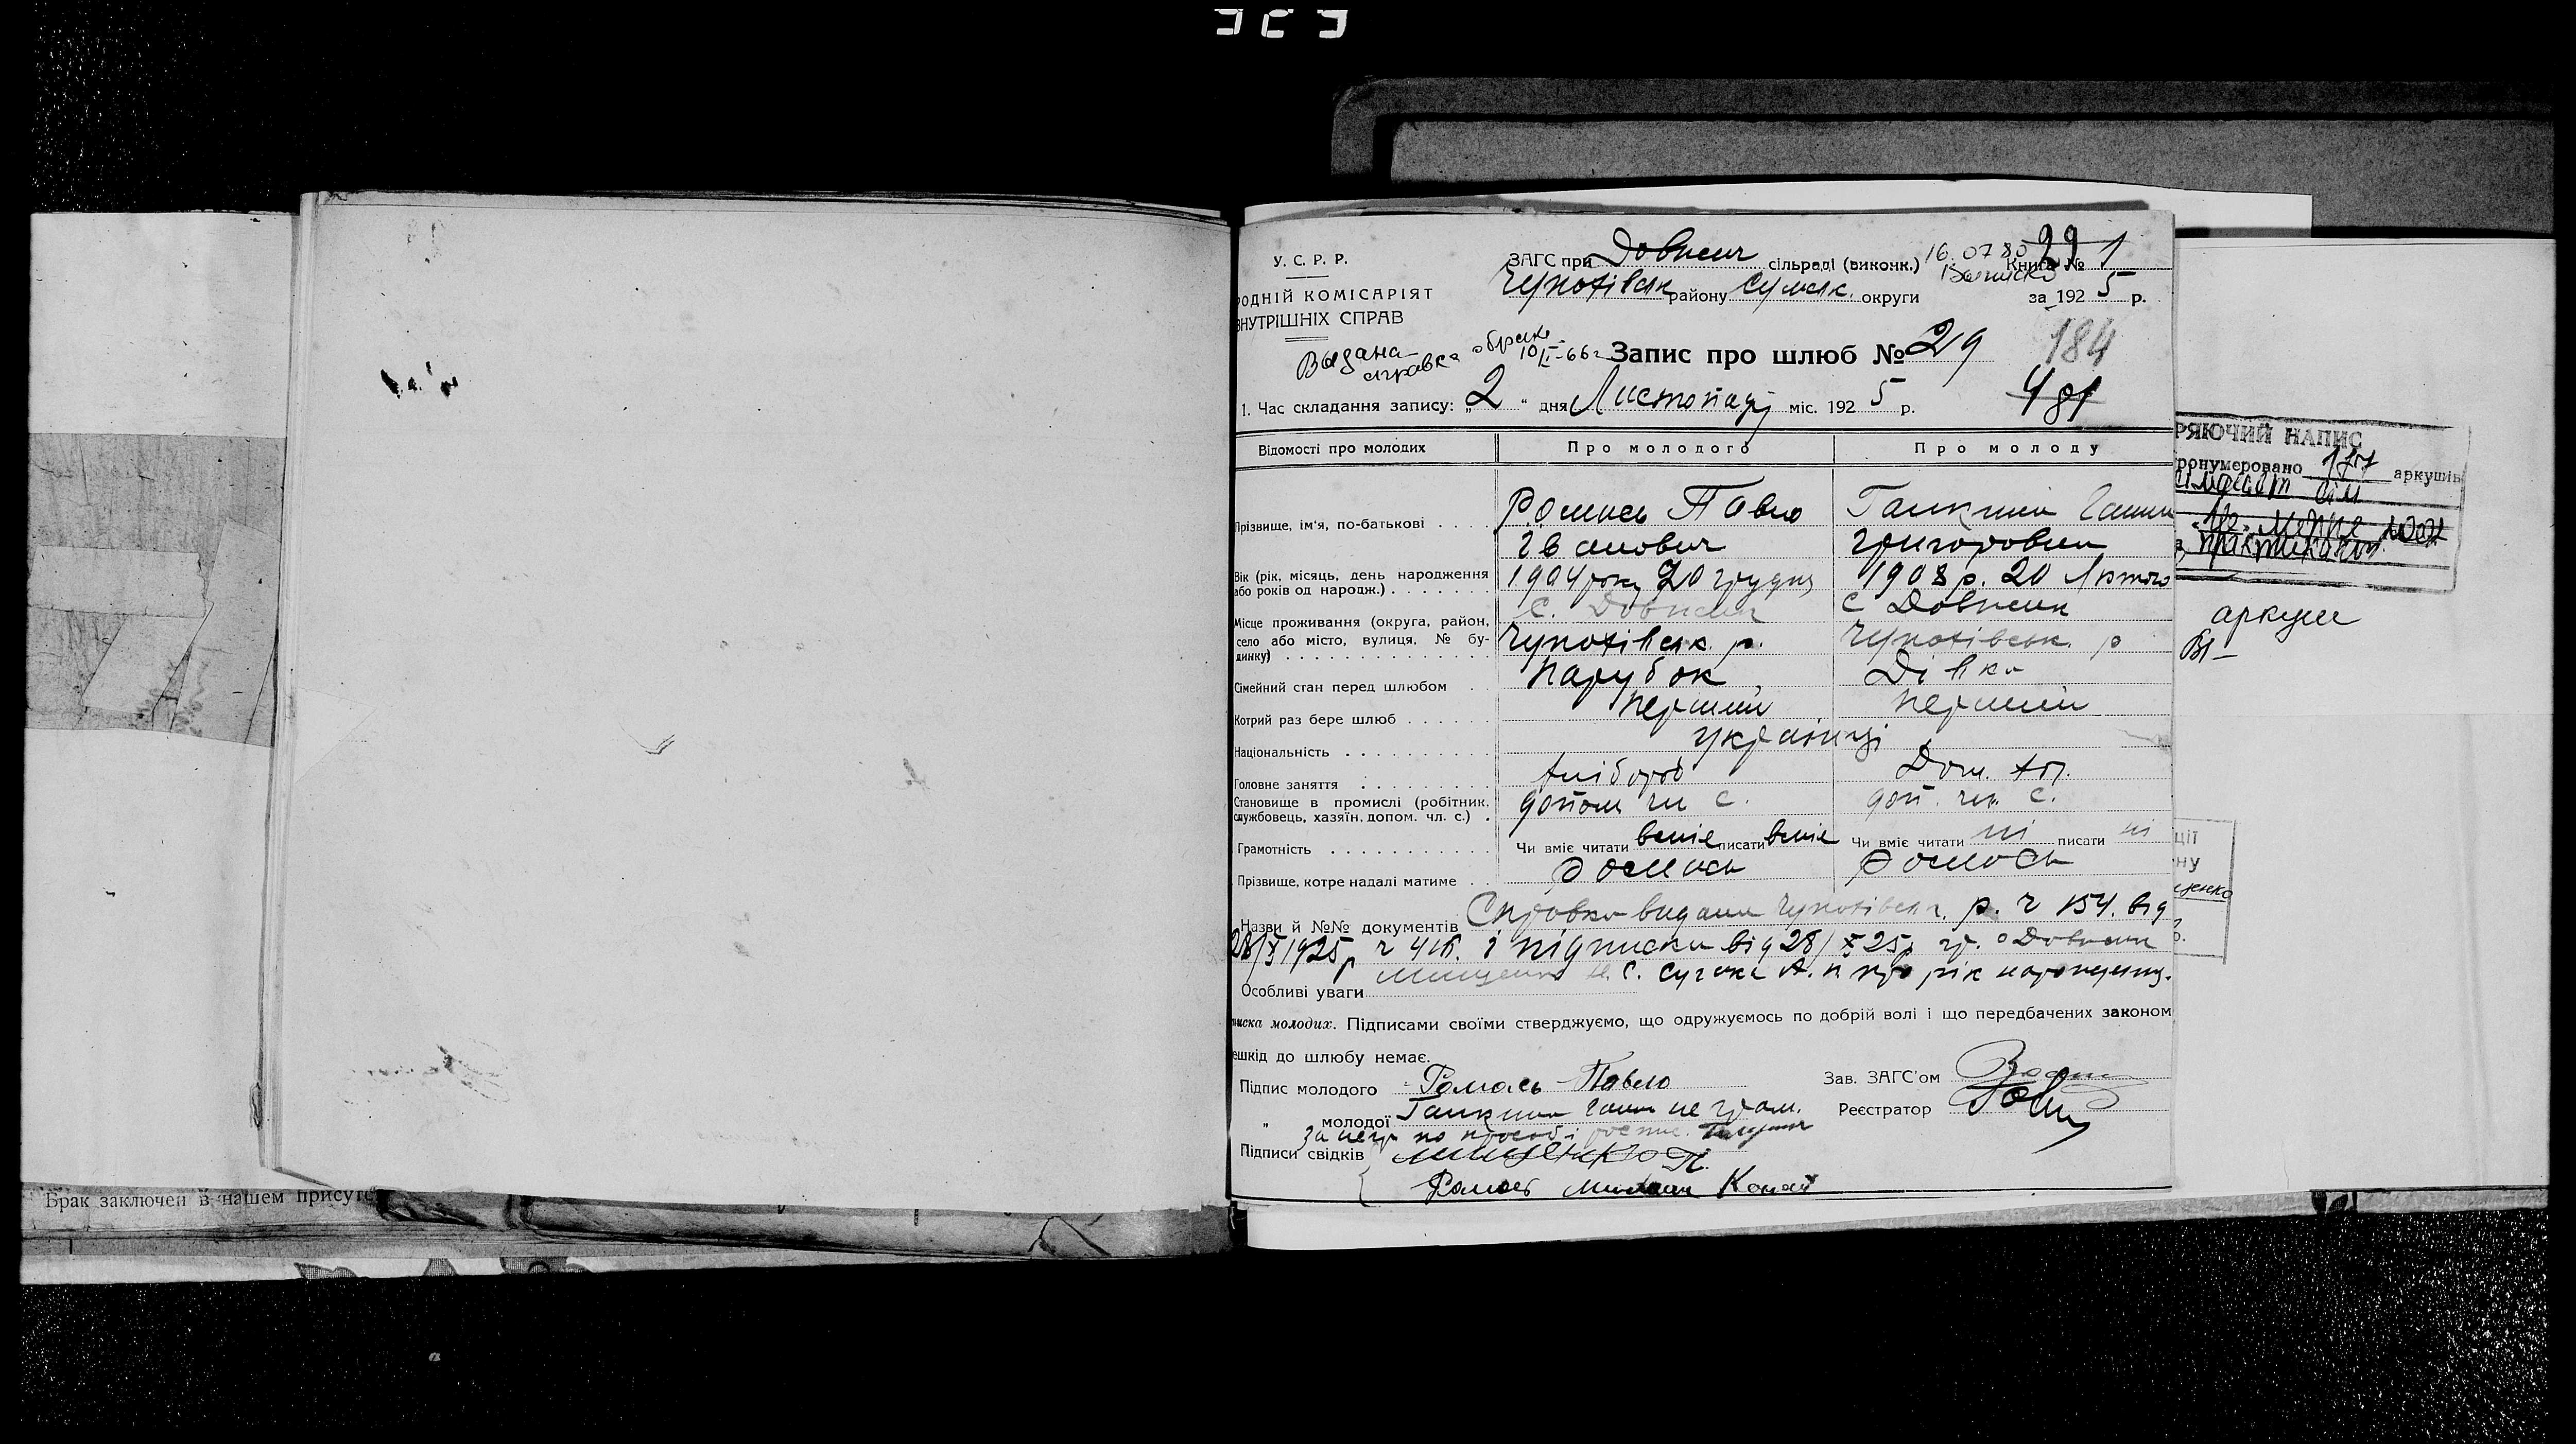 У. С. Р. Р.
РОДНІЙ КОМІСАРІЯТ
ВНУТРІШНІХ СПРАВ
ЗАГС при Довжик сільраді (виконк.) 16.07.80 Книга № 29 1
Чупахівськ району Сумськ. округи за 1925 р.
Выдана справка о браке 10/II-66г
Запис про шлюб № 29 184
1. Час складання запису: „2“ дня Листопаду міс. 1925 р. 481
Відомості про молодих Про молодого Про молоду
Прізвище, ім'я, по-батькові . . . . Ромась Павло
Іванович Григоровна
Вік (рік, місяць, день народження або років од народж.) . . . . . . . 1904 року 20 грудня 1908 р. 20 Лютого
с. Довжик с Довжик
Місце проживання (округа, район, село або місто, вулиця, № будинку) . . . Чупахівськ. р. Чупахівськ. р
Сімейний стан перед шлюбом . . Парубок Дівка
Котрий раз бере шлюб . . . . . . перший перший
Національність . . . . . . . . . . . українці
Головне заняття . . . . . . . . . хлібороб Дом. гос.
Становище в промислі (робітник, службовець, хазяїн, допом. чл. с.) . допом чл с. доп. чл. с.
Грамотність . . . . . . . . . . . Чи вміє читати вміє писати вміє Чи вміє читати ні писати ні
Прізвище, котре надалі матиме . . Ромась Ромась
Назви й №№ документів Справка видана Чупахівськ. р. ч 154. від
28/X 1925 р і підписки від 28/X 25р гр. с Довжик
Мищенко С. Сугака А. П про рік народження.
Особливі уваги
писка молодих. Підписами своїми стверджуємо, що одружуємось по добрій волі і що передбачених законом
ешкід до шлюбу немає.
Підпис молодого Ромась Павло Зав. ЗАГС'ом
„ молодої не грам. Реєстратор
за негр по прозьбі
Підписи свідків Мищенко П.
Ромась
РЯЮЧИЙ НАПИС
ронумеровано 177 аркушів
сімдесят сім
практикант
аркуш
ції
ну
Брак заключен в нашем присутс